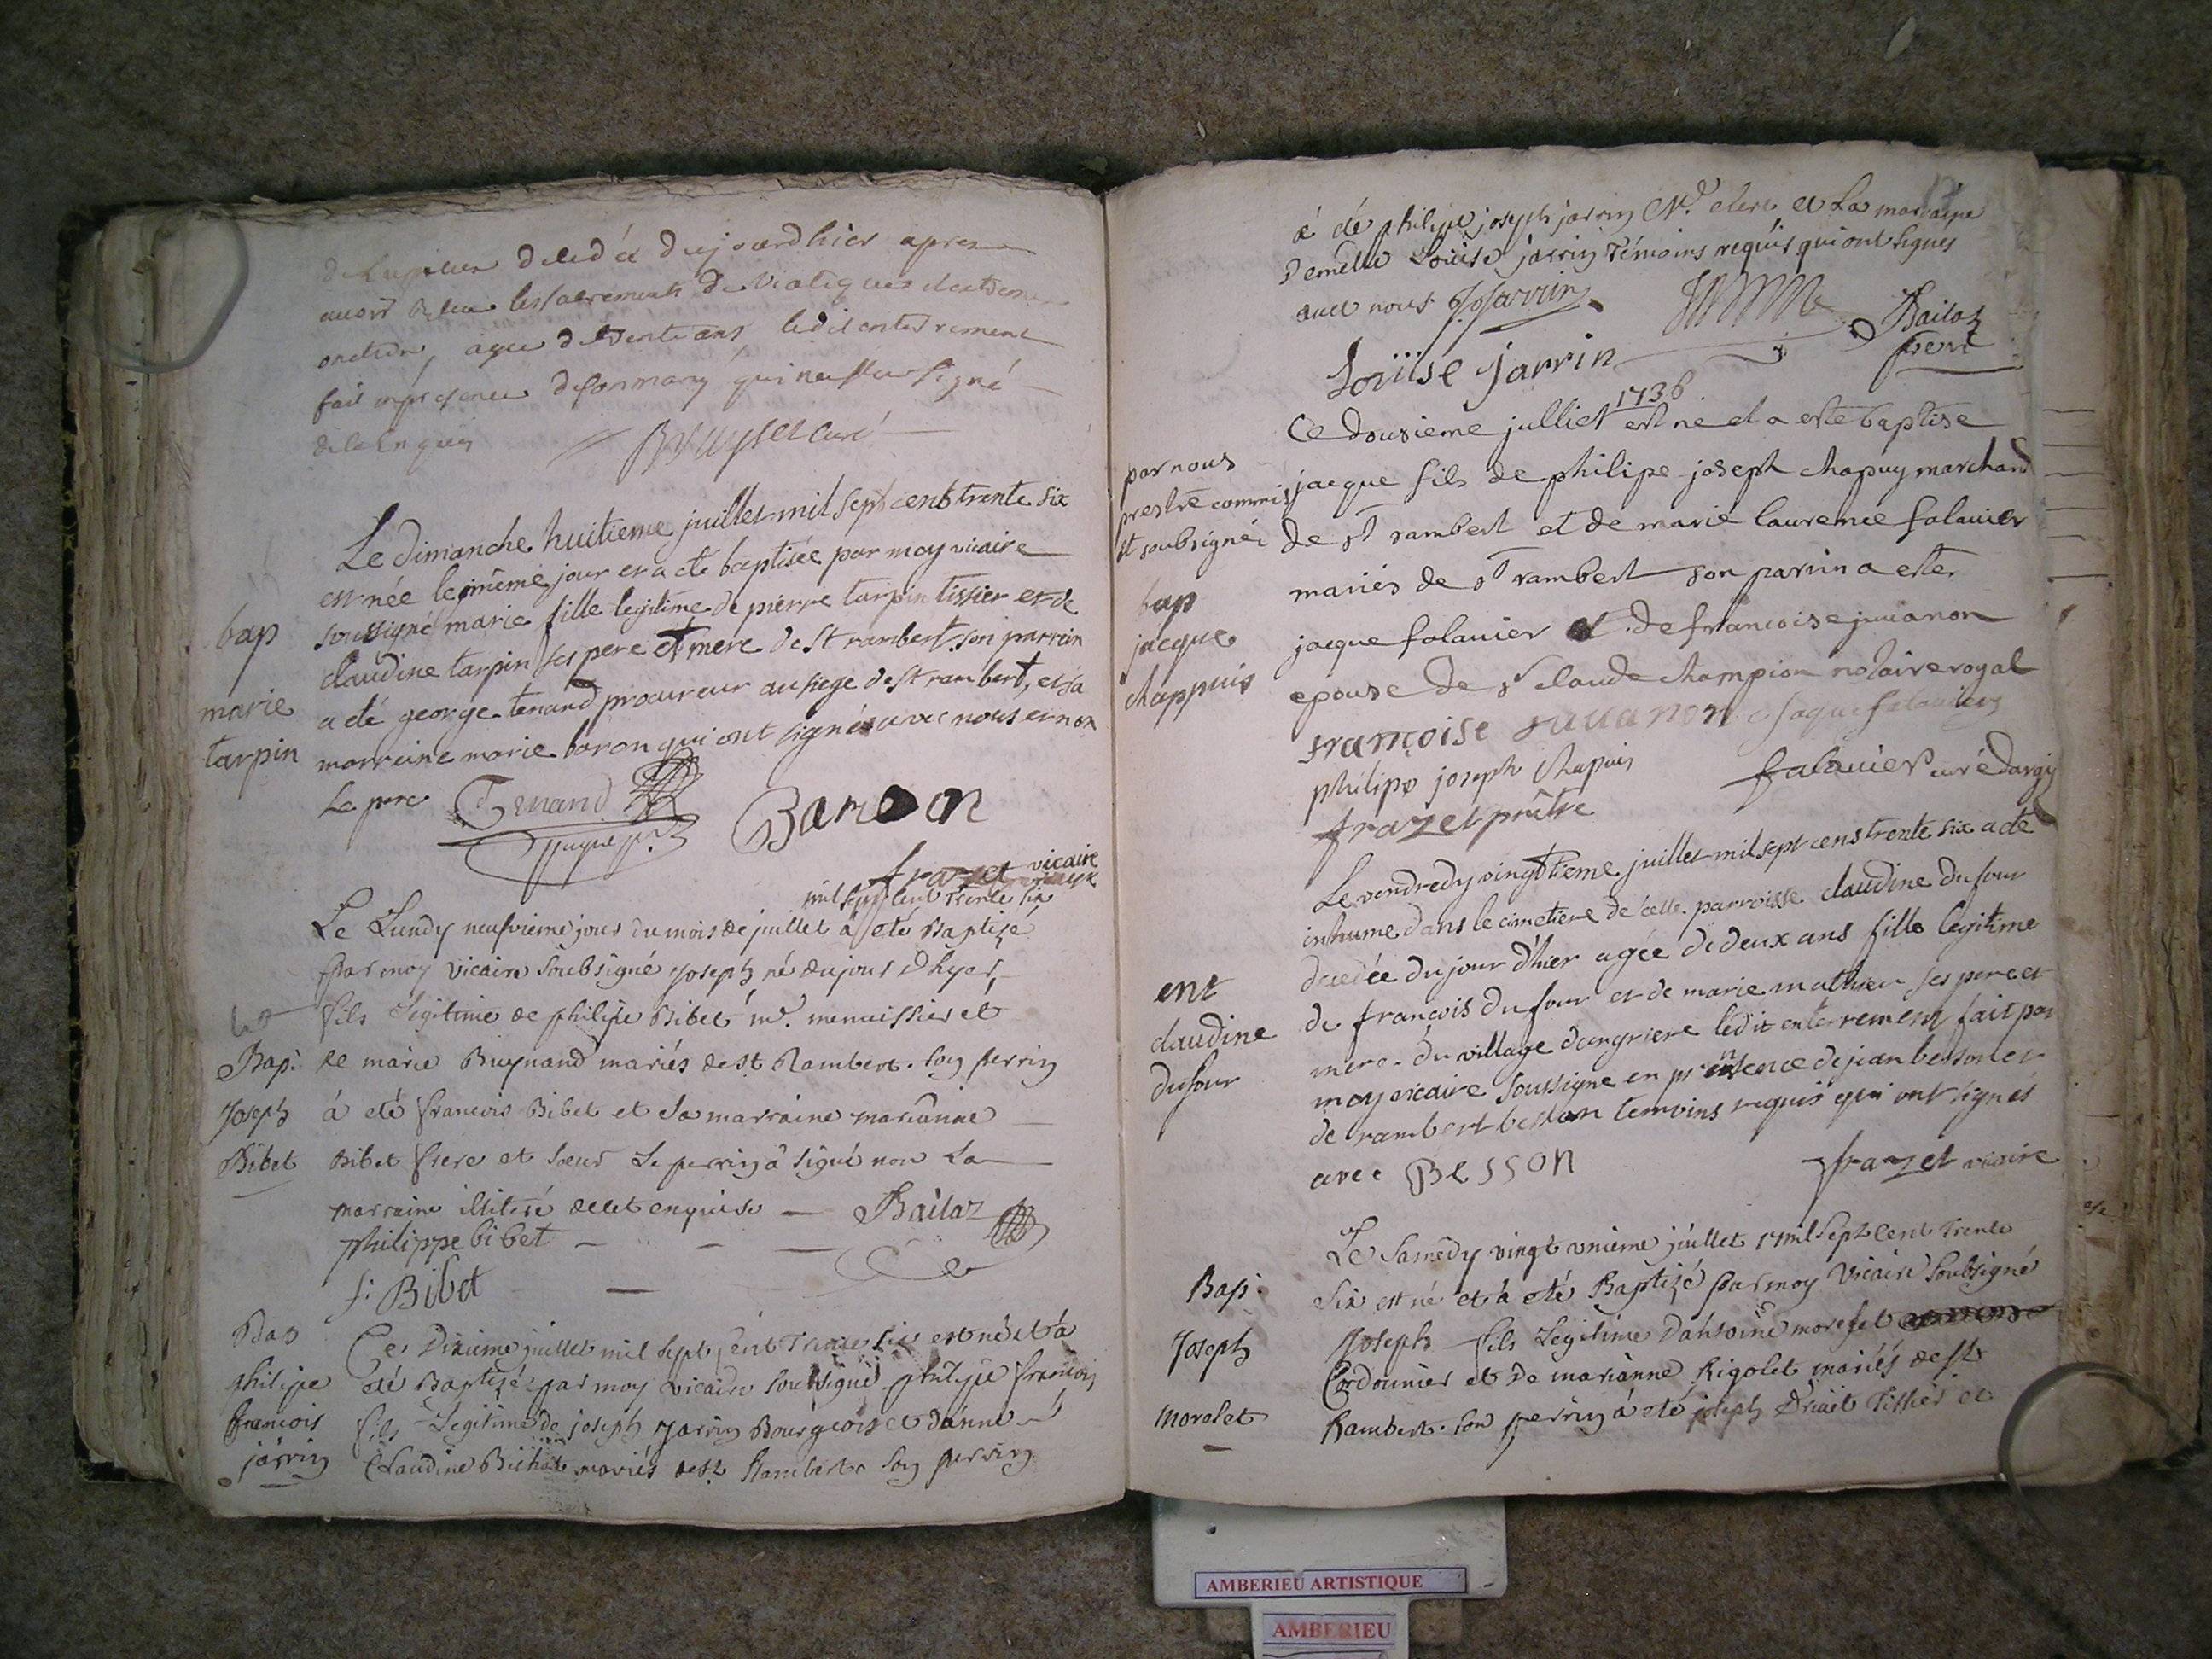 decedée dujourdhier apres
avoir Releu les sacrements de Viatiques et extreme
onction, agee de trente ans, ledit enterrement
fait en presence de son mary qui na sceu signé
de ce Enquis
Bruyset curé
Le dimanche huitieme juillet mil sept cent trente six
est née le même jour et a été baptisée par moy vicaire
soussigné marie fille legitime de pierre tarpin tissier et de
claudine tarpin ses pere et mere de St rambert. son parrain
a été george tenand procureur au siege de St rambert, et sa
marraine marie baron qui ont signés avec nous et non
Le pere
Tenand
Baron
frazet vicaire
bap
marie
tarpin
mil sept cent trente six
Le Lundy neufvieme jour du mois de juillet à eté Baptizé
par moy vicaire soubsigné joseph né du jour d'hyer,
fils Legitime de philipe Bibet md. menuissier et
de marie Buynand mariés de St Rambert. son perrin
à eté francois Bibet et sa marraine marianne
Bibet frere et soeur Le perrin à signé non La
marraine illiteré de cet enquise
Bailaz
philippe bibet
f: Bibet
Bap:
Joseph
Bibet
Ce Dixieme juillet mil sept cent Trente six est né et à
été Baptizé par moy vicaire soubsigné philipe francois
fils Legitime de joseph jarrin Bourgeois et d'anne
Claudine Bichat mariés de St Rambert. son perrin
Bap
philipe
francois
jarrin
à été philipe joseph jarrin Nd. clerc et La marraine
demelle Louise jarrin Témoins requis qui ont signes
avec nous
J Jarrin
Bailaz
Louise jarrin
1736
Ce dousieme julliet est né et a esté baptise
par nous
prestre commis
st soubsigné
jacque fils de philipe joseph chapuy marchand
de st rambert et de marie laurence falavier
mariés de st rambert son parrin a esté
jacque falavier et de francoise juvanon
epouse de sr claude champion notaire royal
bap
jacque
chappuis
françoise Juvanon
Jaque falavier
philipe joseph Chapuis
falavier curé darg
frazet prêtre
Le vendredy vingtieme juillet mil sept cens trente six a été
inhume dans le cimetiere de cette parroisse claudine dufour
decedée du jour d'hier agée de deux ans fille legitime
de francois dufour et de marie mathieu ses pere et
mere du village dangriere ledit enterrement fait par
moy vicaire soussigne en presence de jean besson et
de rambert besson temoins requis qui ont signés
avec
Besson
frazet vicaire
ent
claudine
dufour
Le Samedy vingt unieme juillet mil sept cent trente
six est né et à eté Baptizé par moy Vicaire soubsigné
Joseph fils Legitime d'antoine morelet
Cordonnier et de marianne Rigolet mariés de st
Rambert. son perrin à eté joseph Druit Tissier et
Bap:
Joseph
Morelet
AMBERIEU ARTISTIQUE
AMBERIEU